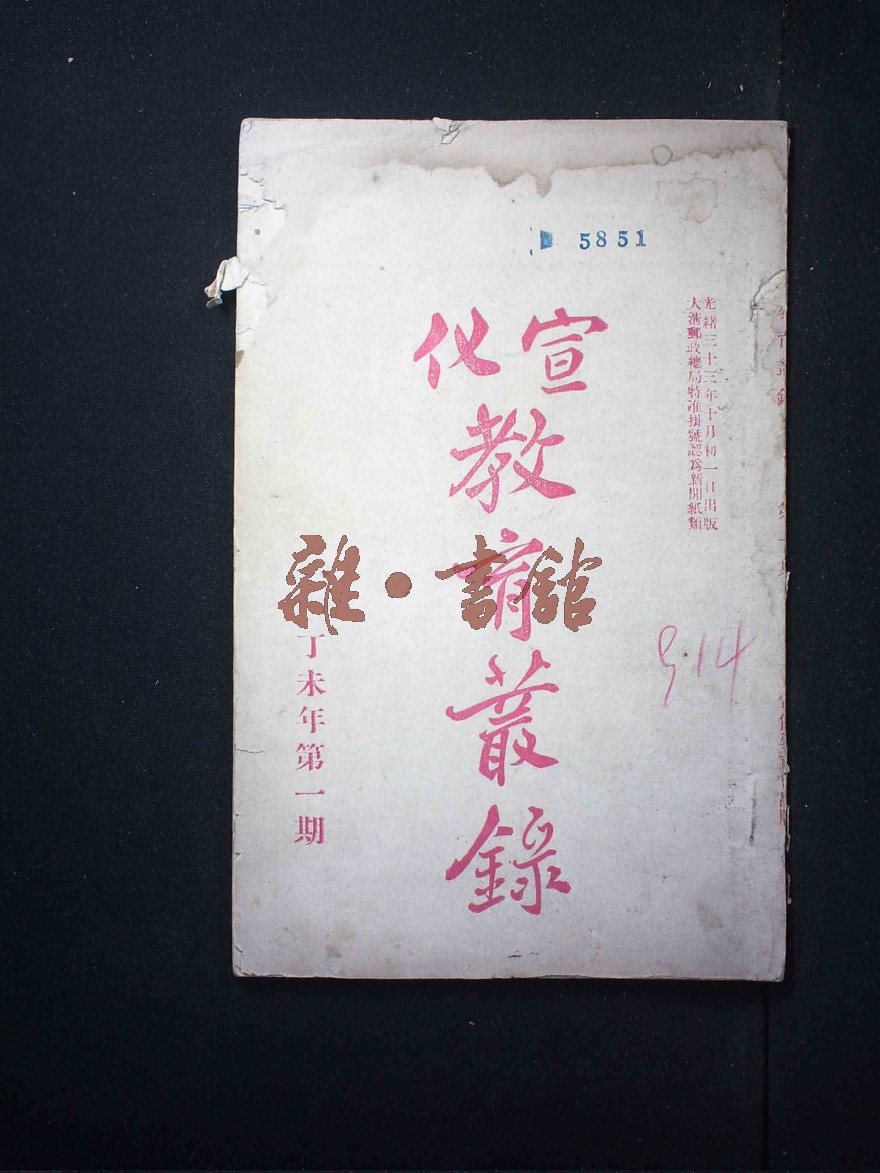 5851
光緒三十三年十月初一日出版
大淸郵政總局特准掛號認爲新聞紙類
宣化
教育叢錄
丁未年第一期
雜·書館
914